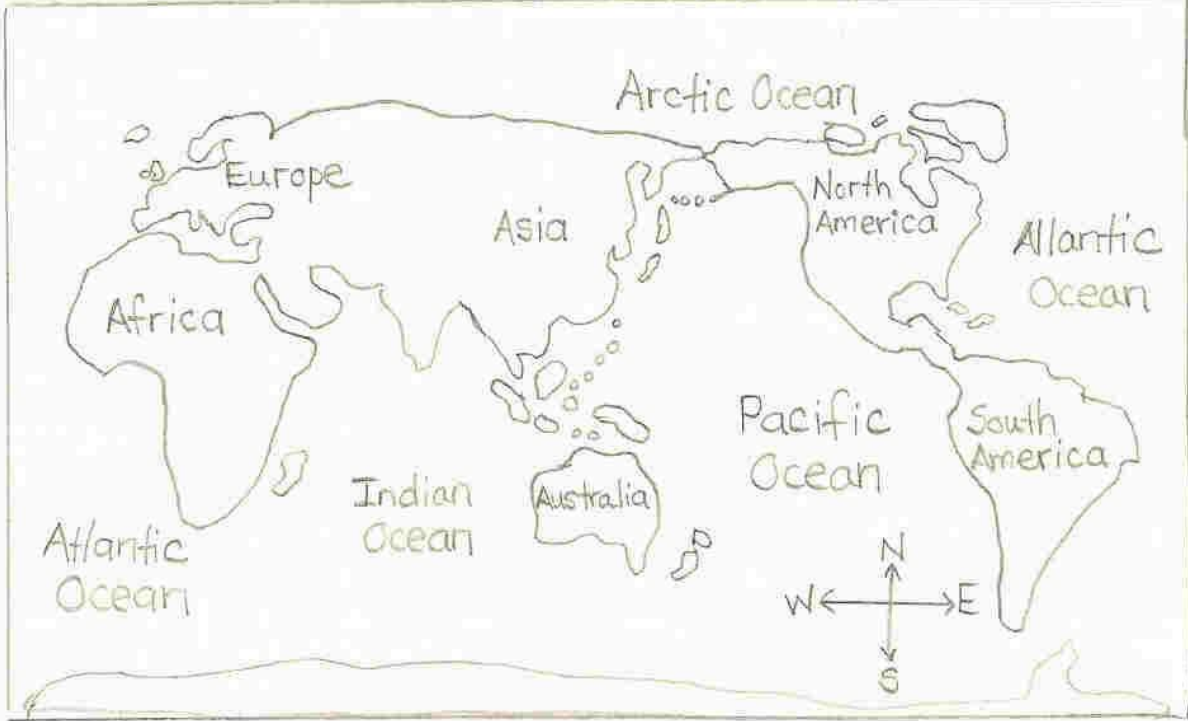 Arctic Ocean
Europe
Asia
North
America
Allantic
Ocean
Africa
Pacific
Ocean
South
America
Indian
Ocean
Australia
Atlantic
Ocean
N
W E
S